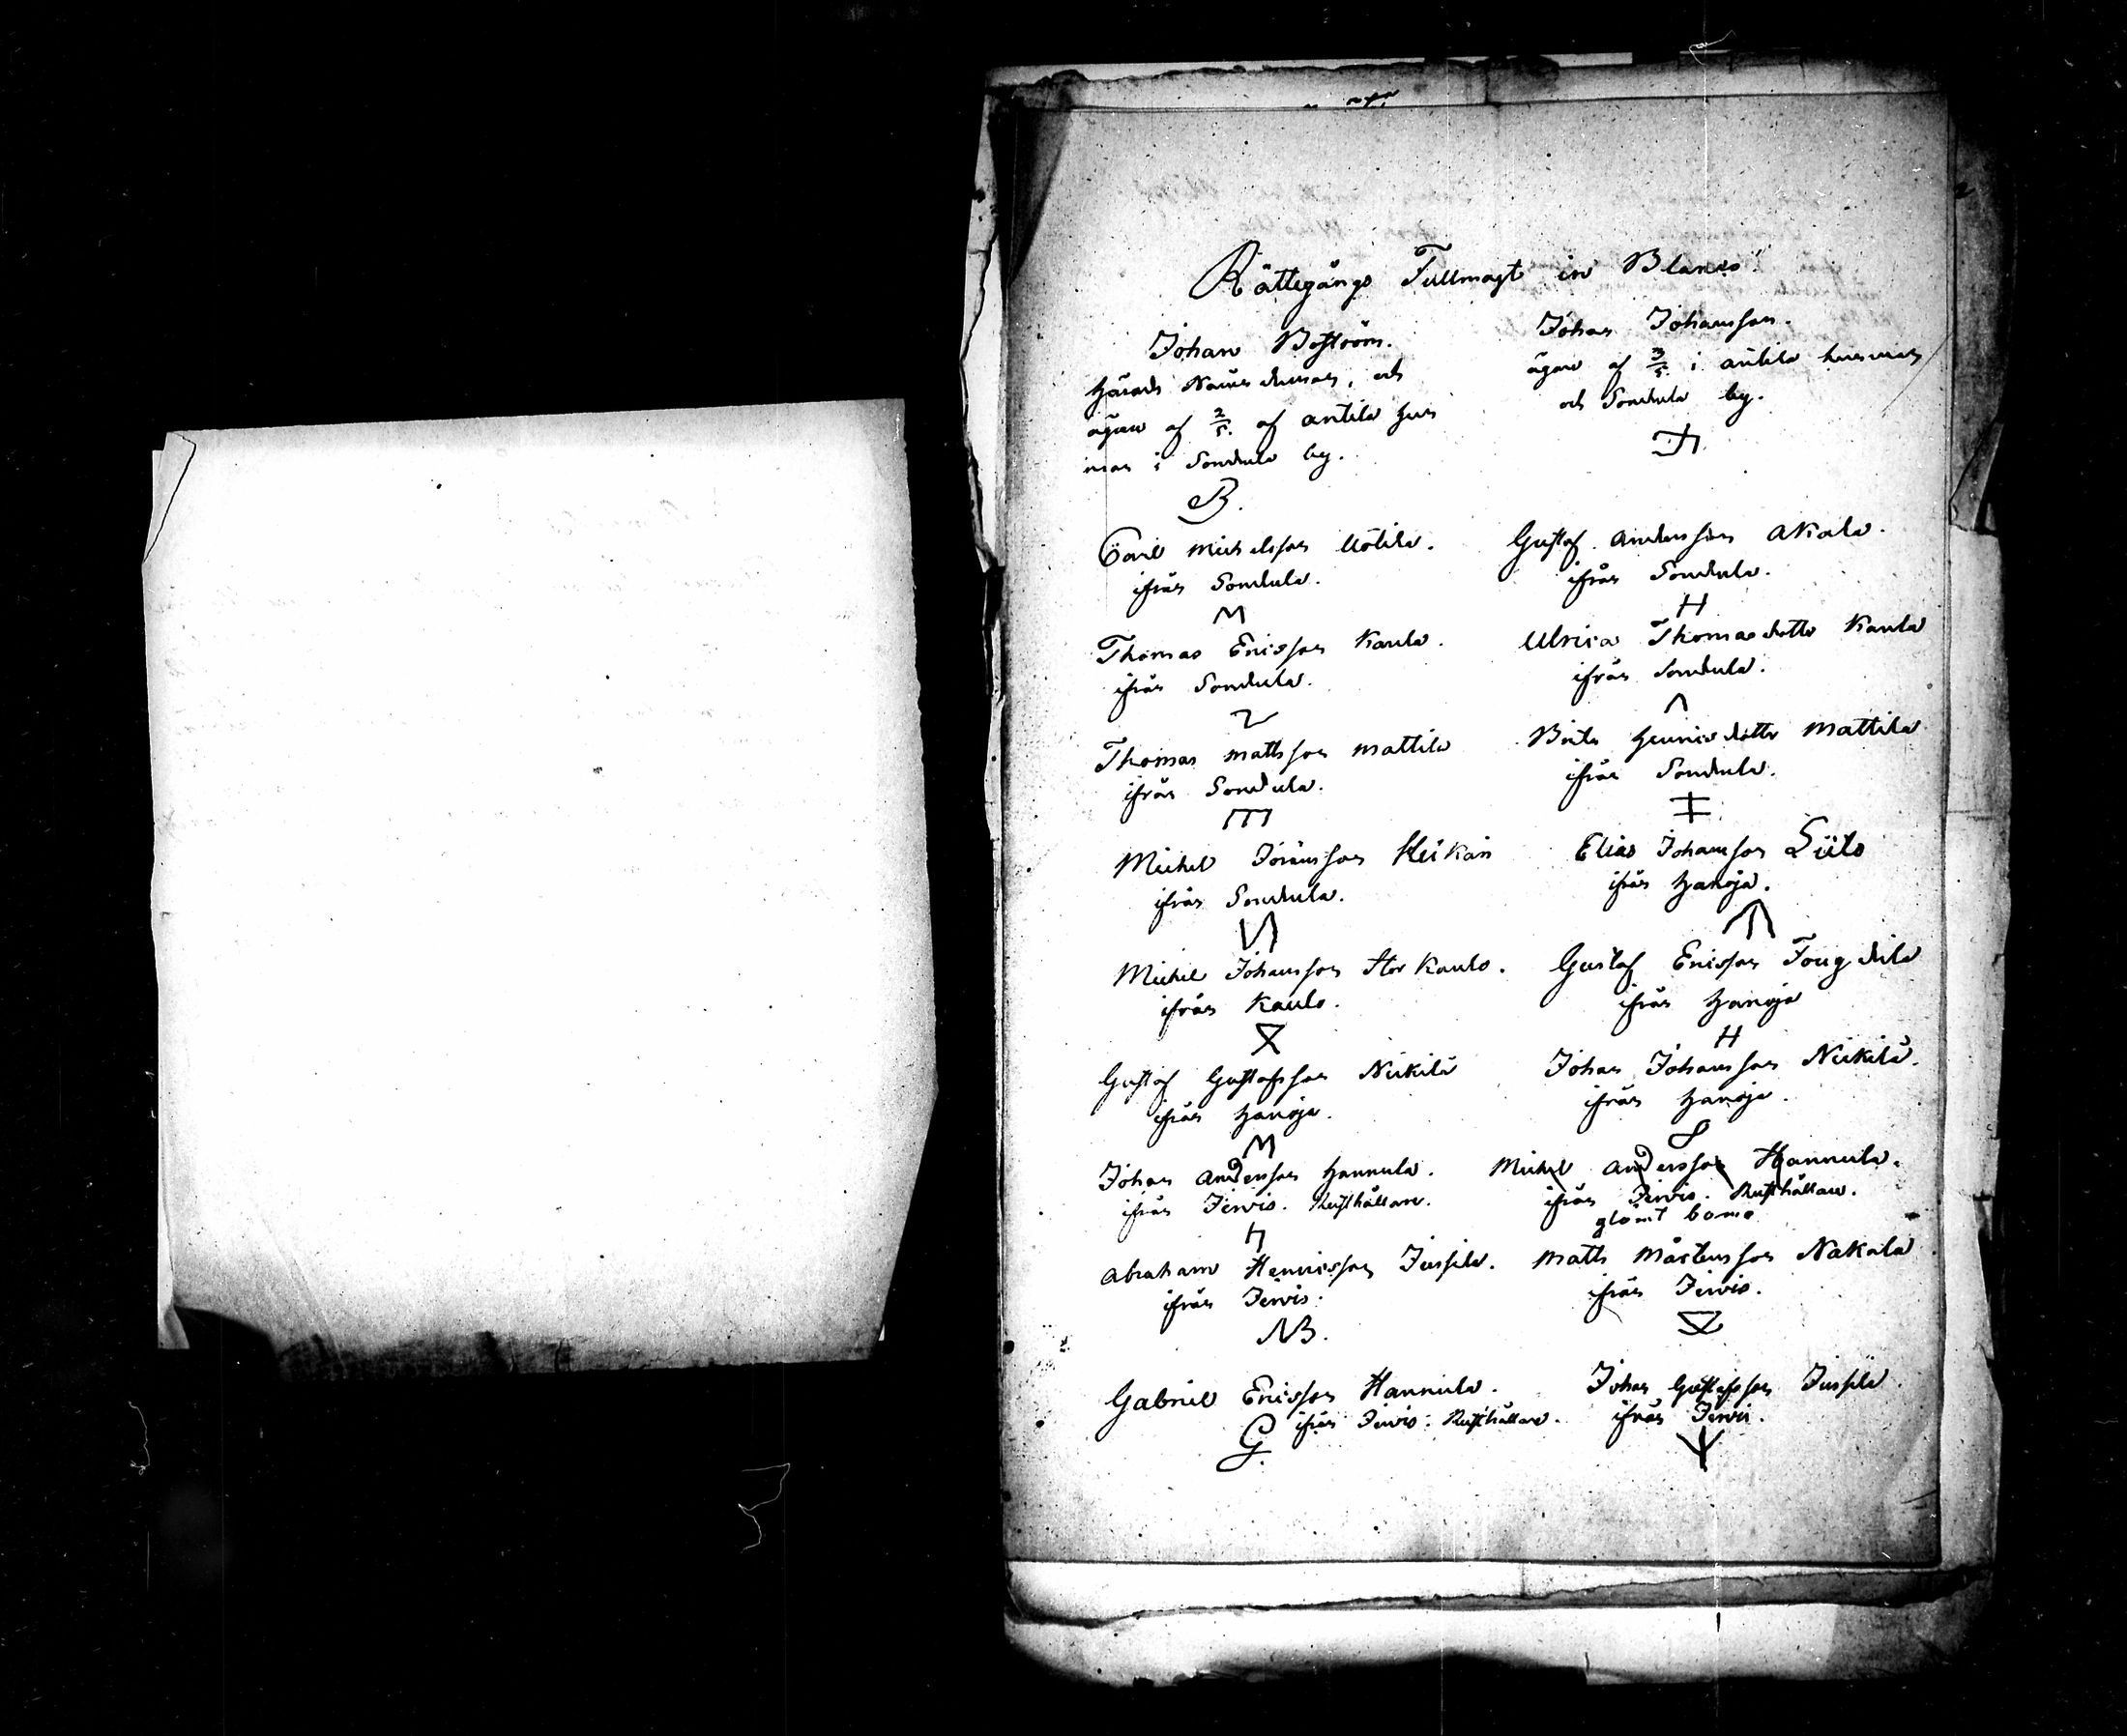 Rättegångs Fullmagt in Blanco
Johan Boström.
Härads Nämndeman, och
ägare af 2/5. af antila hem
man i Sondula by.
B.
Johan Johansson.
ägare af 3/5. i antila hemman
och Sondula by.
Carl Michelsson Uotila.
ifrån Sondula.
M
Gustaf andersson aKala.
ifrån Sondula.
H
Thomas Ericsson Kaula.
ifrån Sondula.
Ulrica Thomasdotter Kaula
ifrån Sondula.
Thomas mattsson mattila
ifrån Sondula.
Brita Henricsdotter mattila
ifrån Sondula.
Michel Jöransson
ifrån Sondula.
Elias Johansson
ifrån Hanoja.
Michel Johansson Stor Kaulo.
ifrån Kaulo.
Gustaf Ericsson Fougdila
ifrån Hanoja
H
Gustaf Gustafsson Nickilä
ifrån Hanoja.
M
Johan Johansson Nickilä.
ifrån Hanoja.
Johan andersson Hannula.
ifrån Jervis. Rusthållare.
Michel andersson Hannula.
ifrån Jervis. Rusthållare.
glömt bomo
Abraham Henricsson Jussila.
ifrån Jervis.
NB.
matts Mårtensson Nakala
ifrån Jervis.
Gabriel Ericsson Hannula.
ifrån Jervis. Rusthållare.
G.
Johan Gustafsson Jussila.
ifrån Jervis.